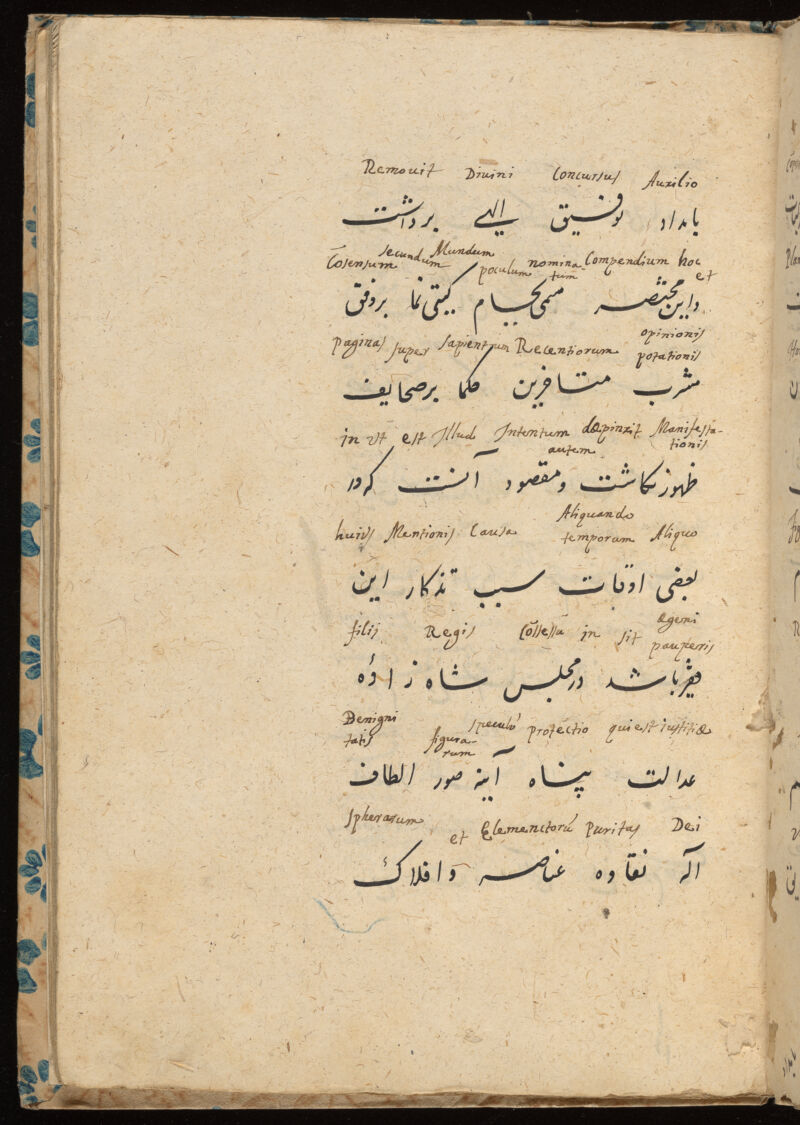 Remouit Diuini Concursus Auxilio
بامداد توفیق الهی برداشت
Cosensum secundum Mundum poculum nomina- Compendium hoc
tum et
واین مختصر مسمی بجام گیتی نما بروفق
opinionis
paginas super sapientum Recentiorum potationis
مشرب متأخرین حکما برصحایف
in vt est Illud Intentum depinxit Manifesta-
autem tionis
ظهور نگاشت ومقصود آنست که در
Aliquando
huius Mentionis Causa temporum Aliquo
بعضی اوقات سبب تذکار این
ægeni
filij Regis Cosessu in sit pauperis
فقیر باشد در مجلس شاه زاده
Benigni speculu protectio qui est iustitiæ
tatis figura-
rum
عدالت پناه آینه صور الطاف
spherarum et Elementorū puritas Dei
اله نقاوه عناصر وافلاک